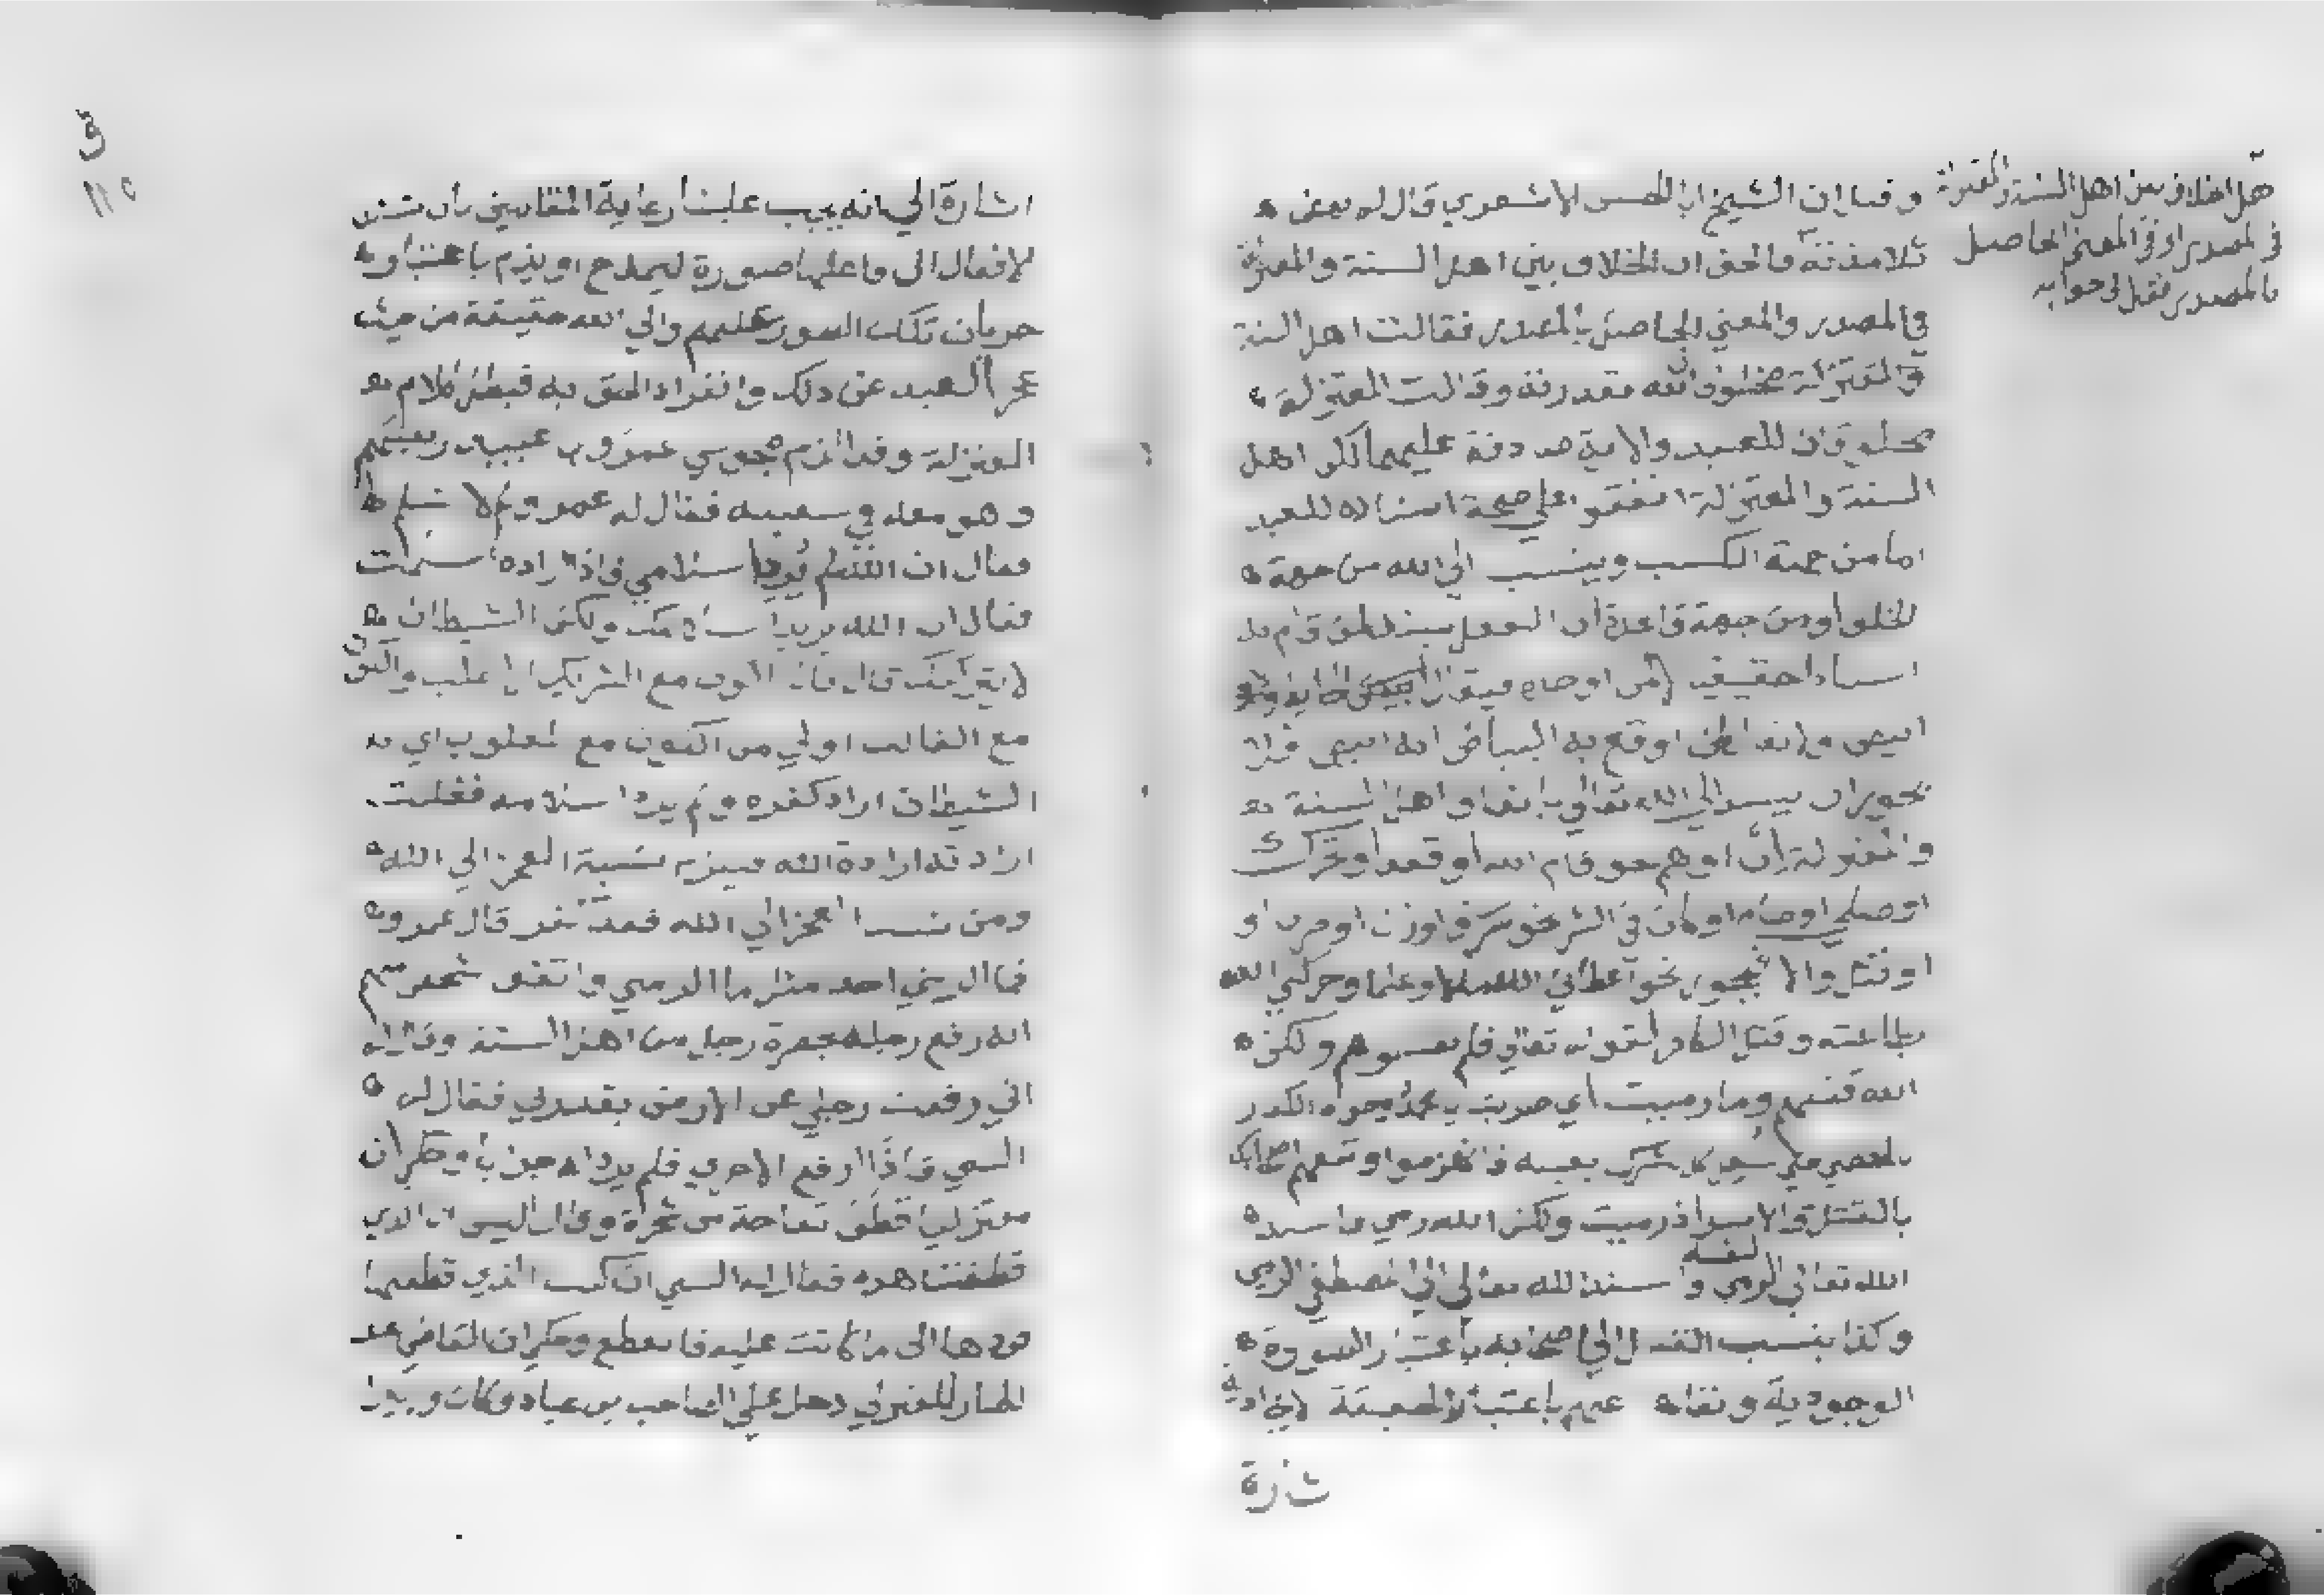 هل الخلاف بين اهل السنة والمعتزلة
في المصدر او في المعنى الحاصل
بالمصدر
الشيخ الاشعري قال له بعض
تلامذته والحق ان الخلاف بين اهل السنة والمعتزلة
في المصدر والمعني الحاصل بالمصدر فقالت اهل السنة
الله بقدرته وقالت المعتزلة
للعبد والاية عليهما لكن اهل
السنة والمعتزلة اتفقوا علي صحة اسناده للعبد
اما من جهة الكسب وينسب الي الله من جهة
الخلق او من جهة قاعدة ان الفعل يسند لمن قام به
اسنادا حقيقيا
ابيض ولا يقال لمن اوقع به البياض انه ابيض فلا
يجوز ان يسند الي الله تعالي باتفاق اهل السنة
والمعتزلة ان اوهم نحو قام الله او قعد او تحرك
او صلي او صام او كان في الشر نحو سرق او زنا او
او قتل والا فيجوز نحو اعطاني الله مالا وعلما وحركني الله
بطاعته وقتل الكافر لقوله تعالي فلم تقتلوهم ولكن
الله قتلهم وما رميت اي ضربت يا محمد وجوه الكفار
بالحصي
بالقتل والاسر اذ رميت ولكن الله رمي فاسند
الله تعالي الرمي لنفسه واسند الله تعالي الي المصطفي الرمي
وكذا ينسب الفعل الي اصحابه باعتبار الصورة
الوجودية ونفاه عنهم باعتبار الحقيقة
شارة
ق
١١٥
اشارة الي انه يجب علينا رعاية المقامين بان تسند
الافعال الي فاعلها صورة ليمدح او يذم باعتبار
جريان تلك الصور عليهم والي الله حقيقة من حيث
عجز العبد عن ذلك وانفراد الحق به فبطل كلام
المعتزلة وقد الزم مجوسي عمرو بن عبيد
وهو معه في سفينه فقال له عمرو لم لا تسلم
فقال ان الله لم يرد اسلامي فاذا اراده اسلمت
فقال ان الله يريد اسلامك ولكن الشيطان
لا يتركك قال فانا اكون مع الشريك الاغلب والكون
مع الغالب اولي من الكون مع المغلوب اي
الشيطان اراد كفره ولم يرد اسلامه فغلبت
ارادته ارادة الله فيلزم نسبة العجز الي الله
ومن نسب العجز الي الله فقد كفر قال عمرو
فما الزمني احد مثل ما الزمني واتفق
انه رفع رجله بحضرة رجل من اهل السنة وقال له
اني رفعت رجلي عن الارض بقدرتي فقال له
السني فاذا ارفع الاخري فلم يرد له جوابا وحكي ان
معتزليا قطف تفاحة من شجرة وقال اليس انا الذي
قطفت هذه فقال له السني ان كنت الذي قطفتها
فردها الي ما كانت عليه فانقطع وحكي ان القاضي عبد
الجبار المعتزلي دخل علي الصاحب بن عباد وكان وزيرا